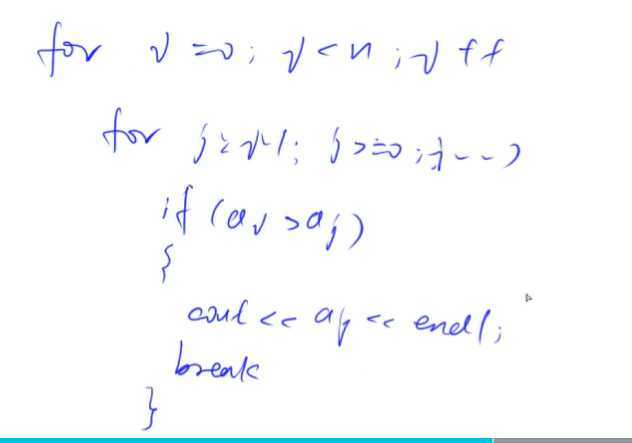 for i=0; i<n; i++
for j=i-1; j>=0; j--)
if (ai >aj)
{
cout << aj << endl;
break
}